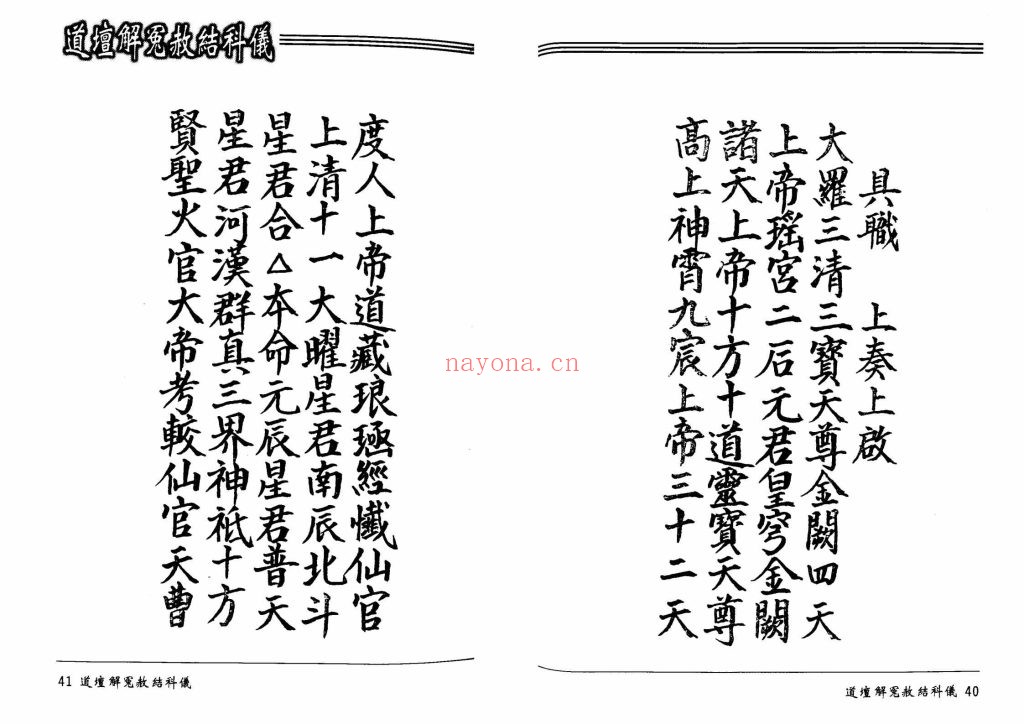 道壇解冤赦結科儀
具職 上奏上啟
大羅三清三寶天尊金闕四天
上帝瑤宮二后元君皇穹金闕
諸天上帝十方十道靈寶天尊
高上神霄九宸上帝三十二天
度人上帝道藏琅函經懺仙官
上清十一大曜星君南辰北斗
星君合△本命元辰星君普天
星君河漢群真三界神祇十方
賢聖火官大帝考較仙官天曹
nayona.cn
道壇解冤赦結科儀 40
41 道壇解冤赦結科儀